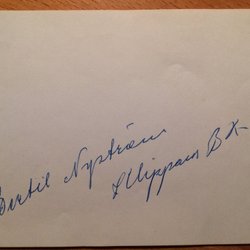 Bertil Nyström
Klippans BK